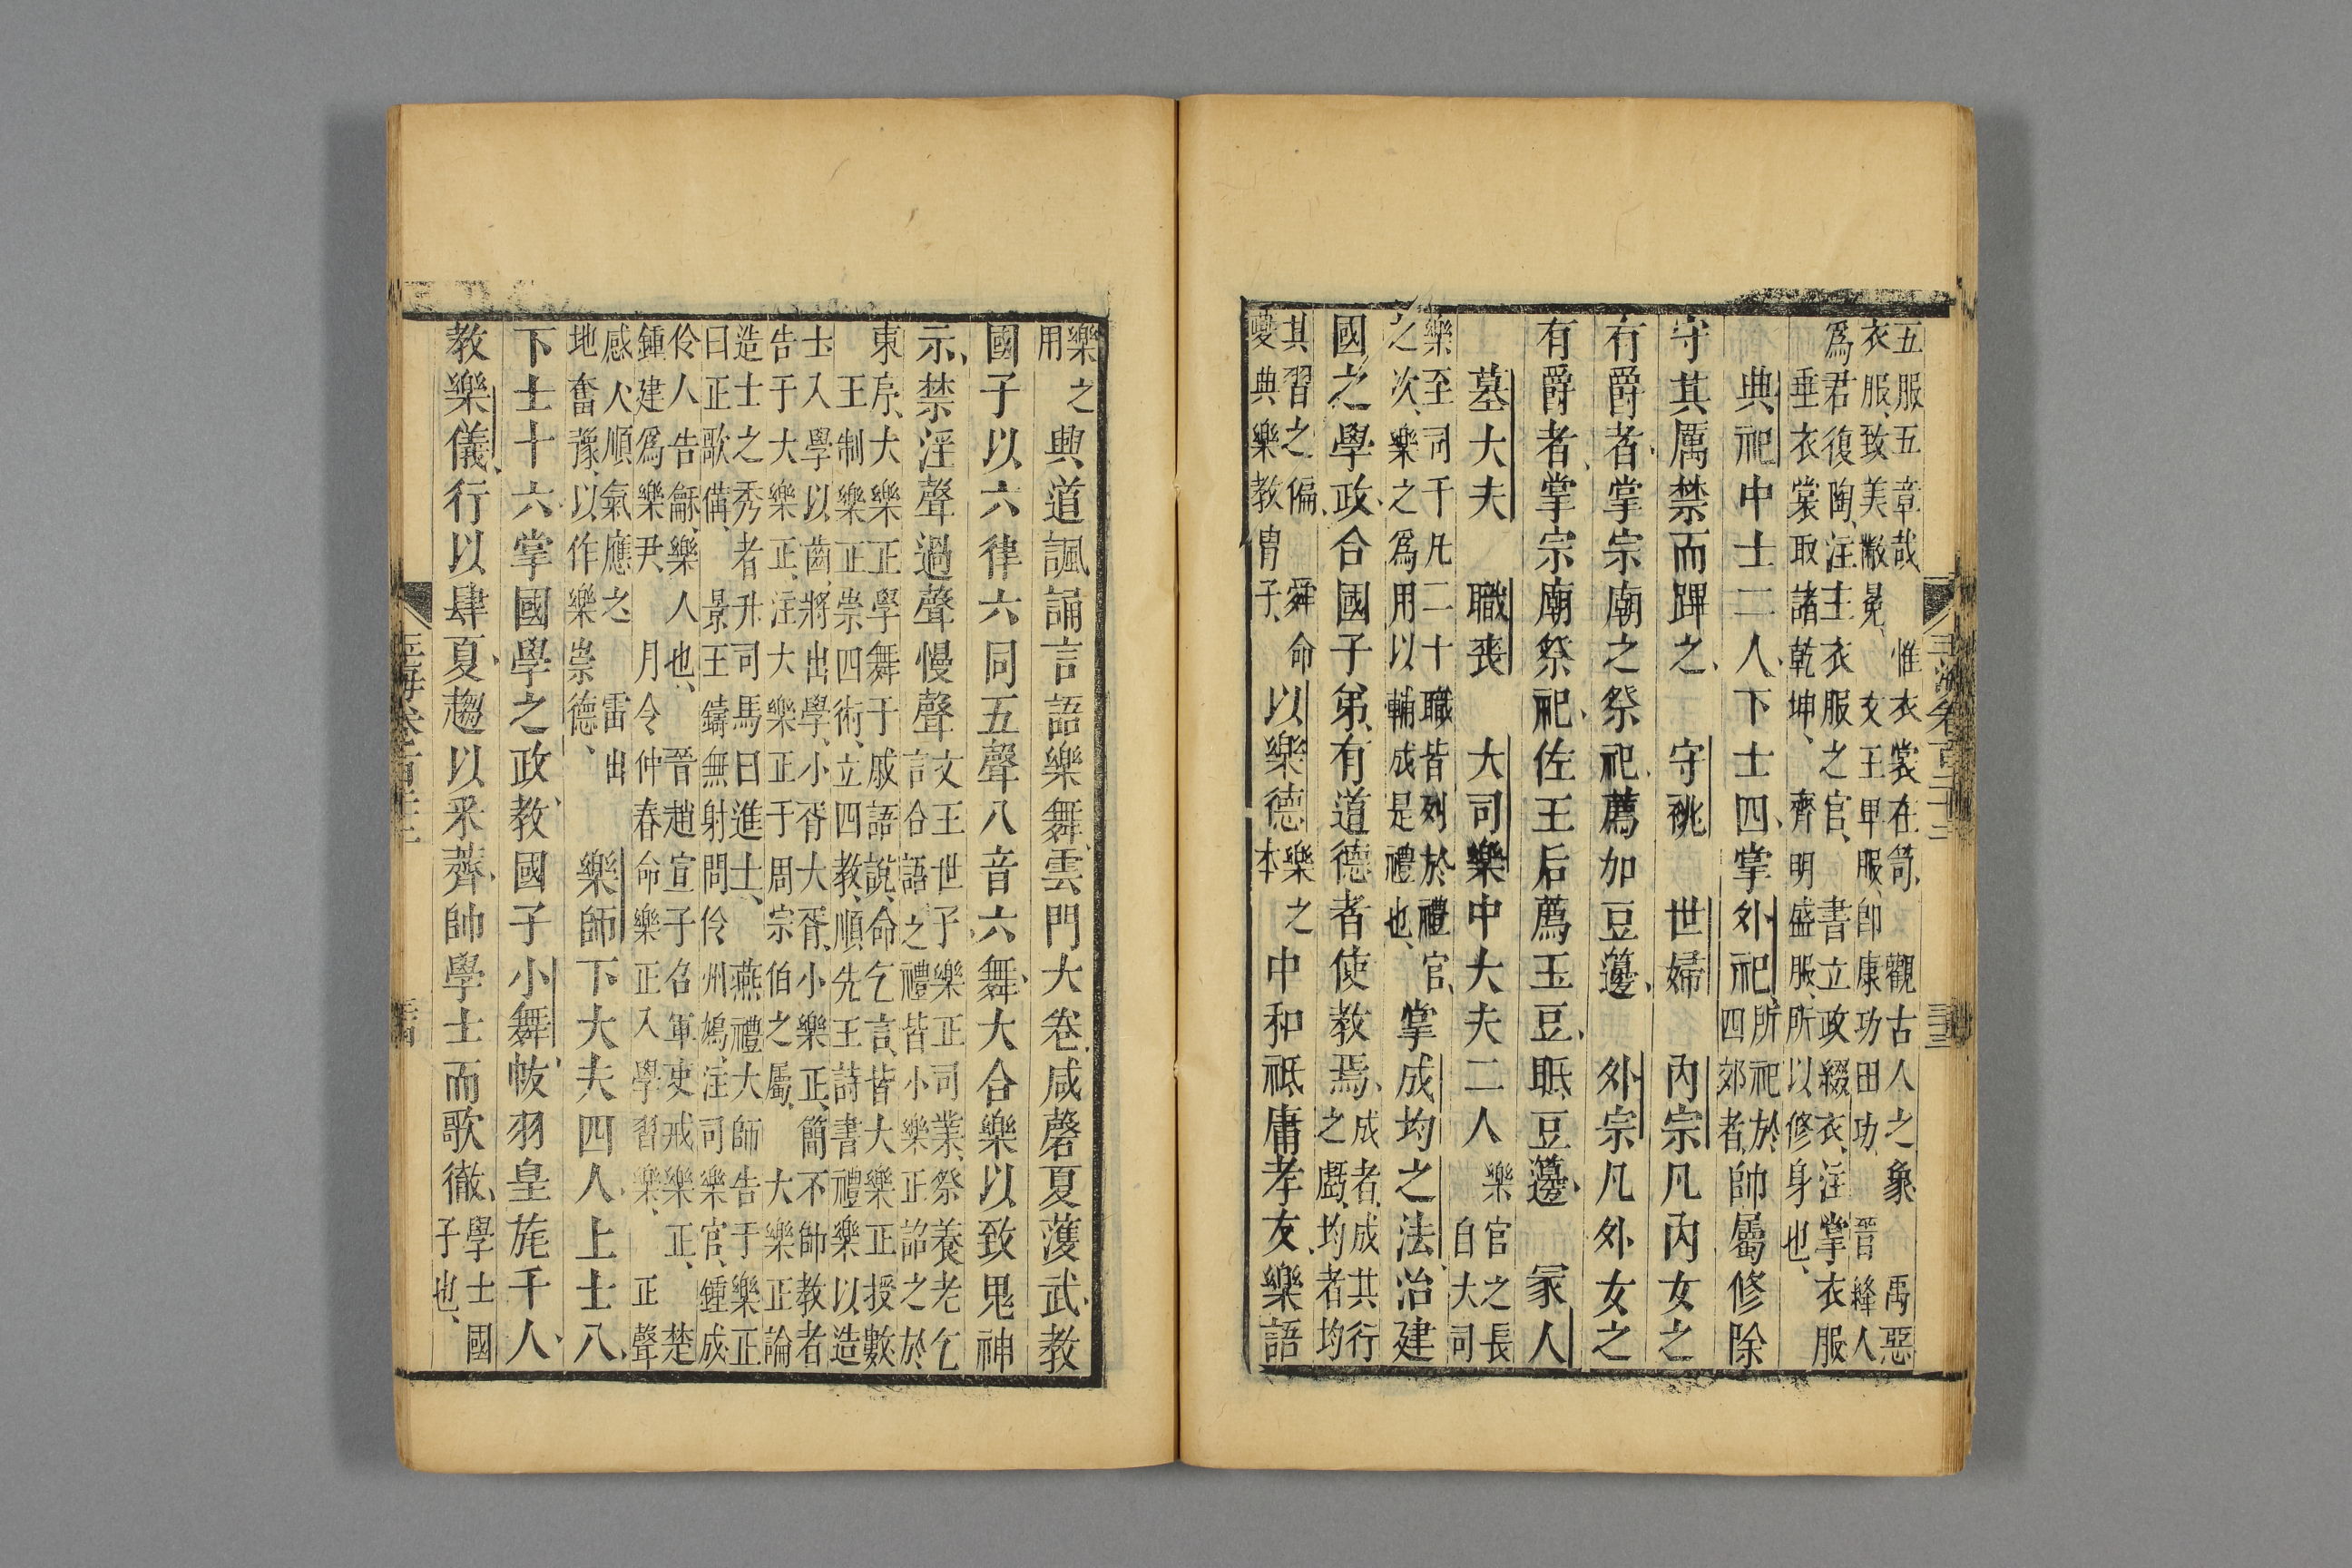 五服五章哉 惟衣裳在笥 觀古人之象 禹惡
衣服致美黻冕 文王卑服即康功田功 晉絳人
爲君復陶注主衣服之官 書立政綴衣注掌衣服
垂衣裳取諸乾坤 齊明盛服所以修身也
典祀中士二人下士四掌外祀
所祀於
四郊者
帥屬修除
守其厲禁而蹕之 守祧 世婦 內宗凡內女之
有爵者掌宗廟之祭祀薦加豆籩 外宗凡外女之
有爵者掌宗廟祭祀佐王后薦玉豆眡豆籩 冡人
墓大夫 職喪 大司樂中大夫二人
樂官之長
自大司
樂至司干凡二十職皆列於禮官
之次樂之爲用以輔成是禮也
掌成均之法治建
國之學政合國子弟有道德者使教焉
成者成其行
之虧均者均
其習之偏 舜命
夔典樂教胄子
以樂德
樂之
本
中和祗庸孝友樂語
樂之
用
興道諷誦言語樂舞雲門大卷咸磬夏濩武教
國子以六律六同五聲八音六舞大合樂以致鬼神
示禁淫聲過聲慢聲
文王世子樂正司業祭養老乞
言合語之禮皆小樂正詔之於
東序大樂正學舞干戚語說命乞言皆大樂正授數
王制樂正崇四術立四教順先王詩書禮樂以造
士入學以齒將出學小胥大胥小樂正簡不帥教者
告于大樂正注大樂正于周宗伯之屬 大樂正論
造士之秀者升司馬曰進士 燕禮大師告于樂正
曰正歌備 景王鑄無射問伶州鳩注司樂官鍾成
伶人告龢樂人也 晉趙宣子召軍吏戒樂正 楚
鍾建爲樂尹 月令仲春命樂正入學習樂 正聲
感人順氣應之 雷出
地奮豫以作樂崇德
樂師下大夫四人上士八
下士十六掌國學之政教國子小舞帗羽皇旄干人
教樂儀行以肆夏趨以采薺帥學士而歌徹
學士國
子也